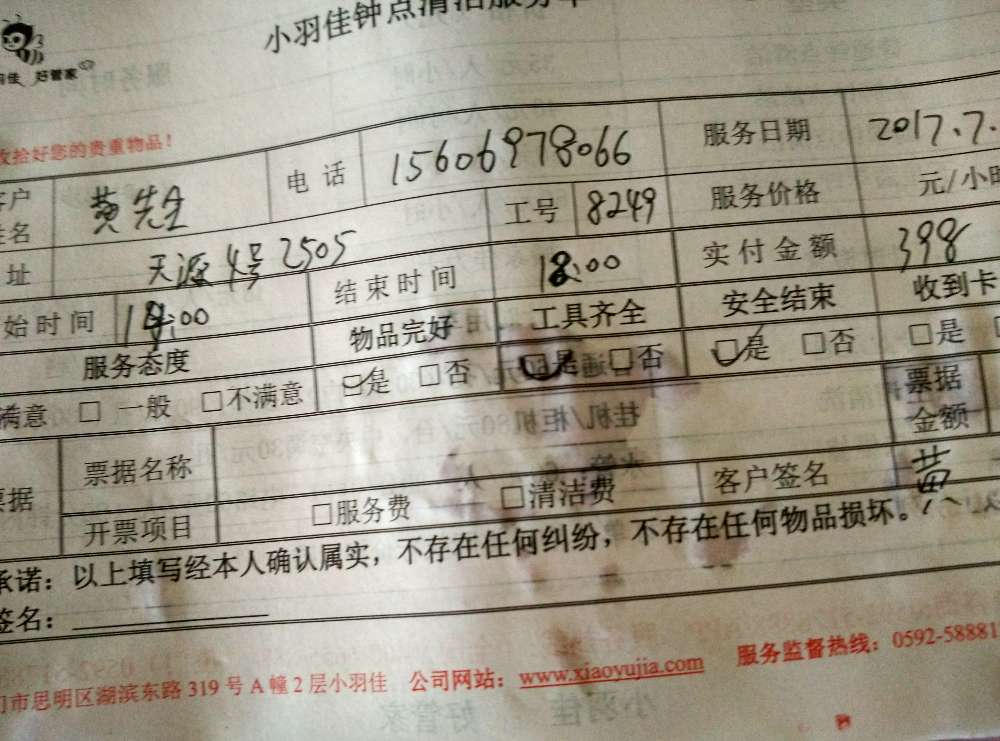 小羽佳钟点清洁服务单
好管家
收拾好您的贵重物品！
客户姓名 黄先生 电话 15606978066 服务日期 2017.7.
址 天源4号2505 工号 8249 服务价格 元/小时
始时间 14:00 结束时间 18:00 实付金额 398
服务态度 物品完好 工具齐全 安全结束 收到卡
满意 □ 一般 □不满意 ☑是 □否 ☑是 □否 ☑是 □否 □是
票据 票据名称 票据金额
开票项目 □服务费 □清洁费 客户签名 黄
承诺：以上填写经本人确认属实，不存在任何纠纷，不存在任何物品损坏。
签名：
门市思明区湖滨东路 319 号 A 幢 2 层小羽佳 公司网站：www.xiaoyujia.com 服务监督热线：0592-58881